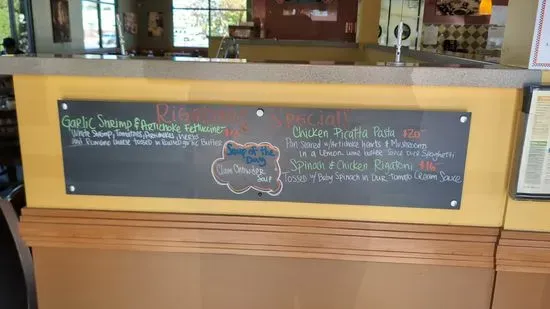 Special!
Garlic Shrimp & Artichoke Fettuccine
White Shrimp, Tomatoes, Herbs
and Romano Cheese tossed in Roasted garlic Butter
Soup of the Day
Clam Chowder
Soup
Chicken Picatta Pasta $20
Pan Seared w/Artichoke Hearts & Mushrooms
in a Lemon Wine Sauce Over Spaghetti
Spinach & Chicken Rigatoni $16
Tossed w/ Baby Spinach in Our Tomato Cream Sauce